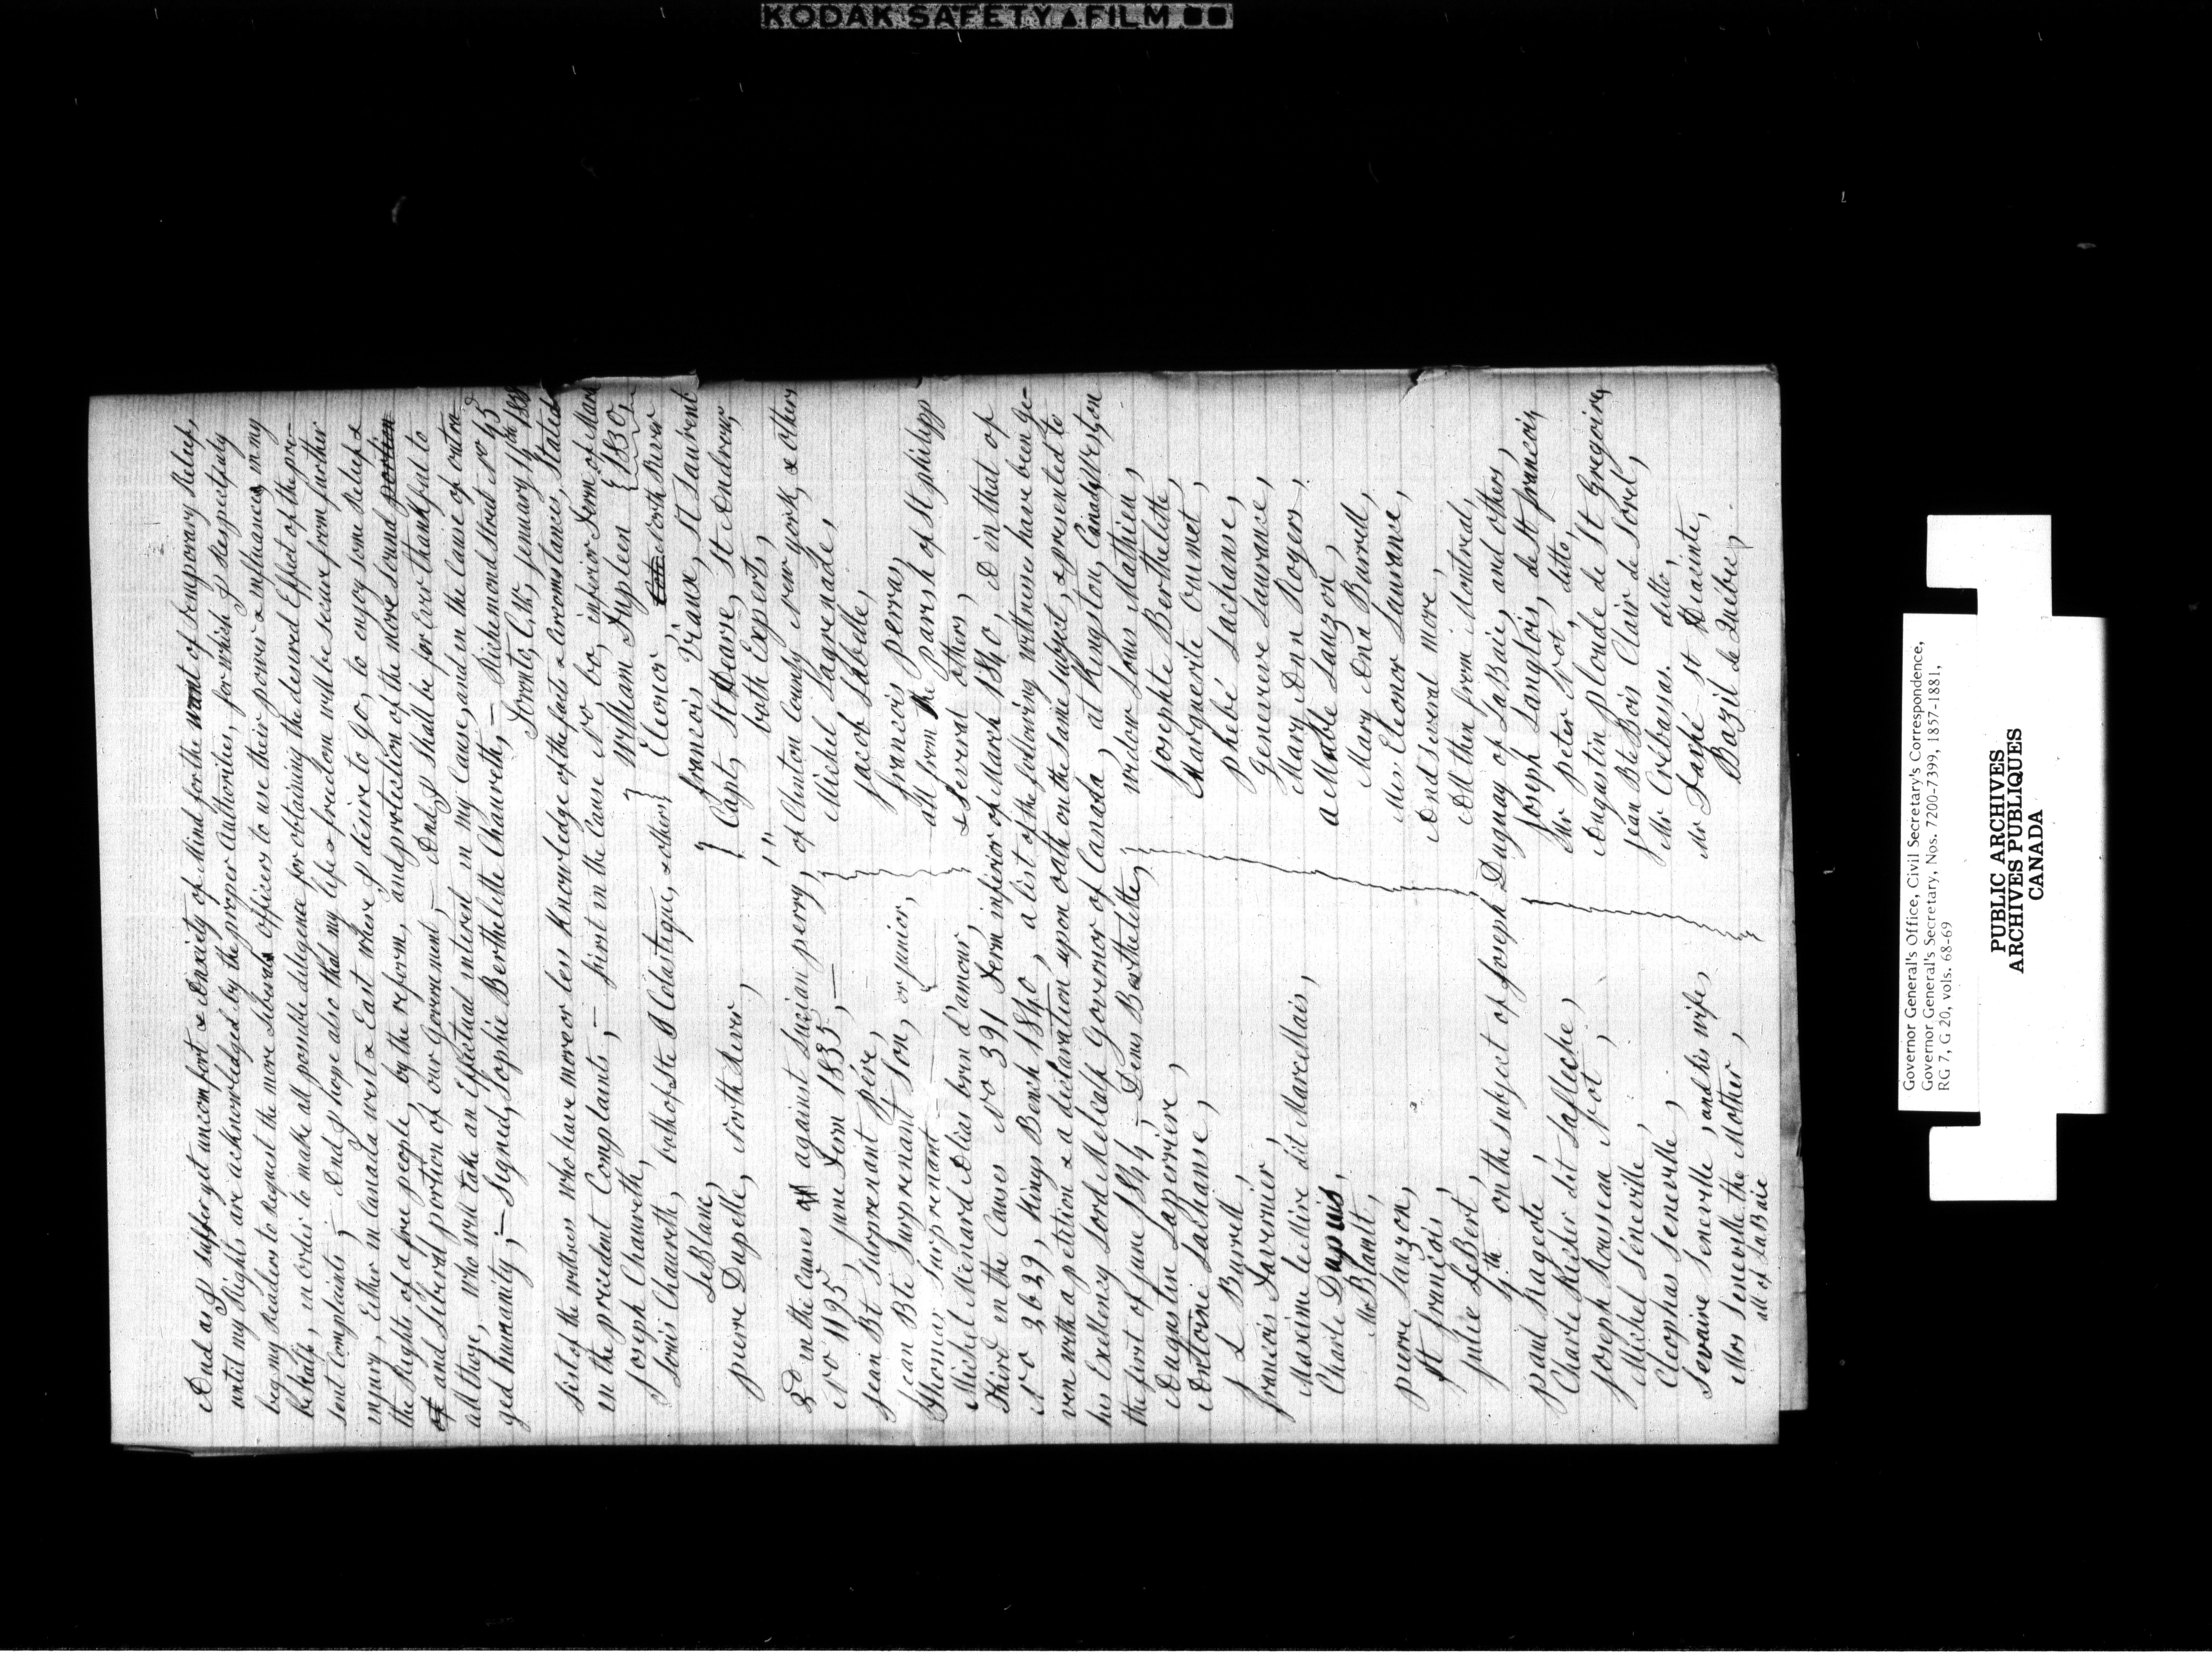 KODAK SAFETY FILM
And as I suffer yet uncomfort & Anxiety of Mind for the want of temporary Relief,
until my Rights are acknowledged by the proper Authorities, for wish I Respectfuly
beg my Readers to request the more Liberals officers to use their power & influances, in my
behalf, in order to make all possible deligence for obtaining the desired Effect of the pre-
sent Complaints; – And I hope also that my life & freedom will be secure from further
injury, Either in Canada west & East where I desire to go, to enjoy some Relief &
the Rights of a free people, by the reform, and protection of the more sound portion
of and Liberal portion of our Government, – And I shall be for Ever thankful to
all those, who will take an Effectual interest in my Cause, and in the Cause of outra-
ged humanity; – Signed, Sophie Berthelette Chaureth, – Richemond Street No 45
Toronto, C.W, Jennuary
List of the witness who have more or less Knowledge of the facts & Circumstances, Stated
in the precedent Complaints; – first in the Cause No 60, inferior Term of
Joseph Chaureth, William Dupleen 1830,
Louis Chaureth, both of Ste Scolastique, & others Eleonor North River
LeBlanc, francois Viaux, St Laurent
pierre Dupelle, North River, Capt, St Dearse, St Andrew,
both Experts,
3d in the Causes against Lucian perry, of Clinton County New york, & others
No 1195, June Term 1835, – Michel Lagrenade,
Jean Bt Surprenant père, Jacob Labelle,
Jean Bte Surprenant Son, or junior, francois perras,
Thomas Surprenant – all from the Parish of St philipp
Michel Menard Alias bon d'amour, & several others,
Third in the Causes No 391 Term inferior of March 1840, & in that of
No 3639, Kings Bench 1840, a list of the following witnesses have been gi-
ven with a petition & a declaration upon oath on the same subject, & presented to
his Exellency Lord Metcalf Governor of Canada, at Kingston, Canada Weston
the first of June 1844; – Denis Berthelette, widow Louis Mathieu,
Augustin Laperrière, Josephte Berthelette,
Antoine Lachanse, Marguerite Ouimet,
J L Burrell, phebé Lachanse,
francois Tavernier, Genevieve Laurance,
Maxime leMire dit Marcellais, Mary Ann Rogers,
Charle Dupuis, aMable Lauzon,
Mr Blamlt, Mary Ann Burrell,
pierre Lauzon, Mrs Eleonor Laurance,
St francois, And several more,
Julie LeBert, All then from Montreal,
4th on the subject of Joseph Duguay of LaBaie, and others,
paul Rageote, Joseph Langlois, de St francois,
Charle Richer dit Lafleche, Mr peter Vot, ditto,
Joseph Rousseau Vot, Augustin plourde de St Gregoire,
Michel Séneville, Jean Bte Bois Clair de Sorel,
Cleophas Seneville, Mr Crébassas. ditto,
Sevaire Seneville, and his wife, Mr Taché St Hiacinte,
Mrs Seneville the Mother, Bazil de Québec,
all of LaBaie
Governor General's Office, Civil Secretary's Correspondence,
Governor General's Secretary, Nos. 7200-7399, 1857-1881,
RG 7, G 20, vols. 68-69
PUBLIC ARCHIVES
ARCHIVES PUBLIQUES
CANADA